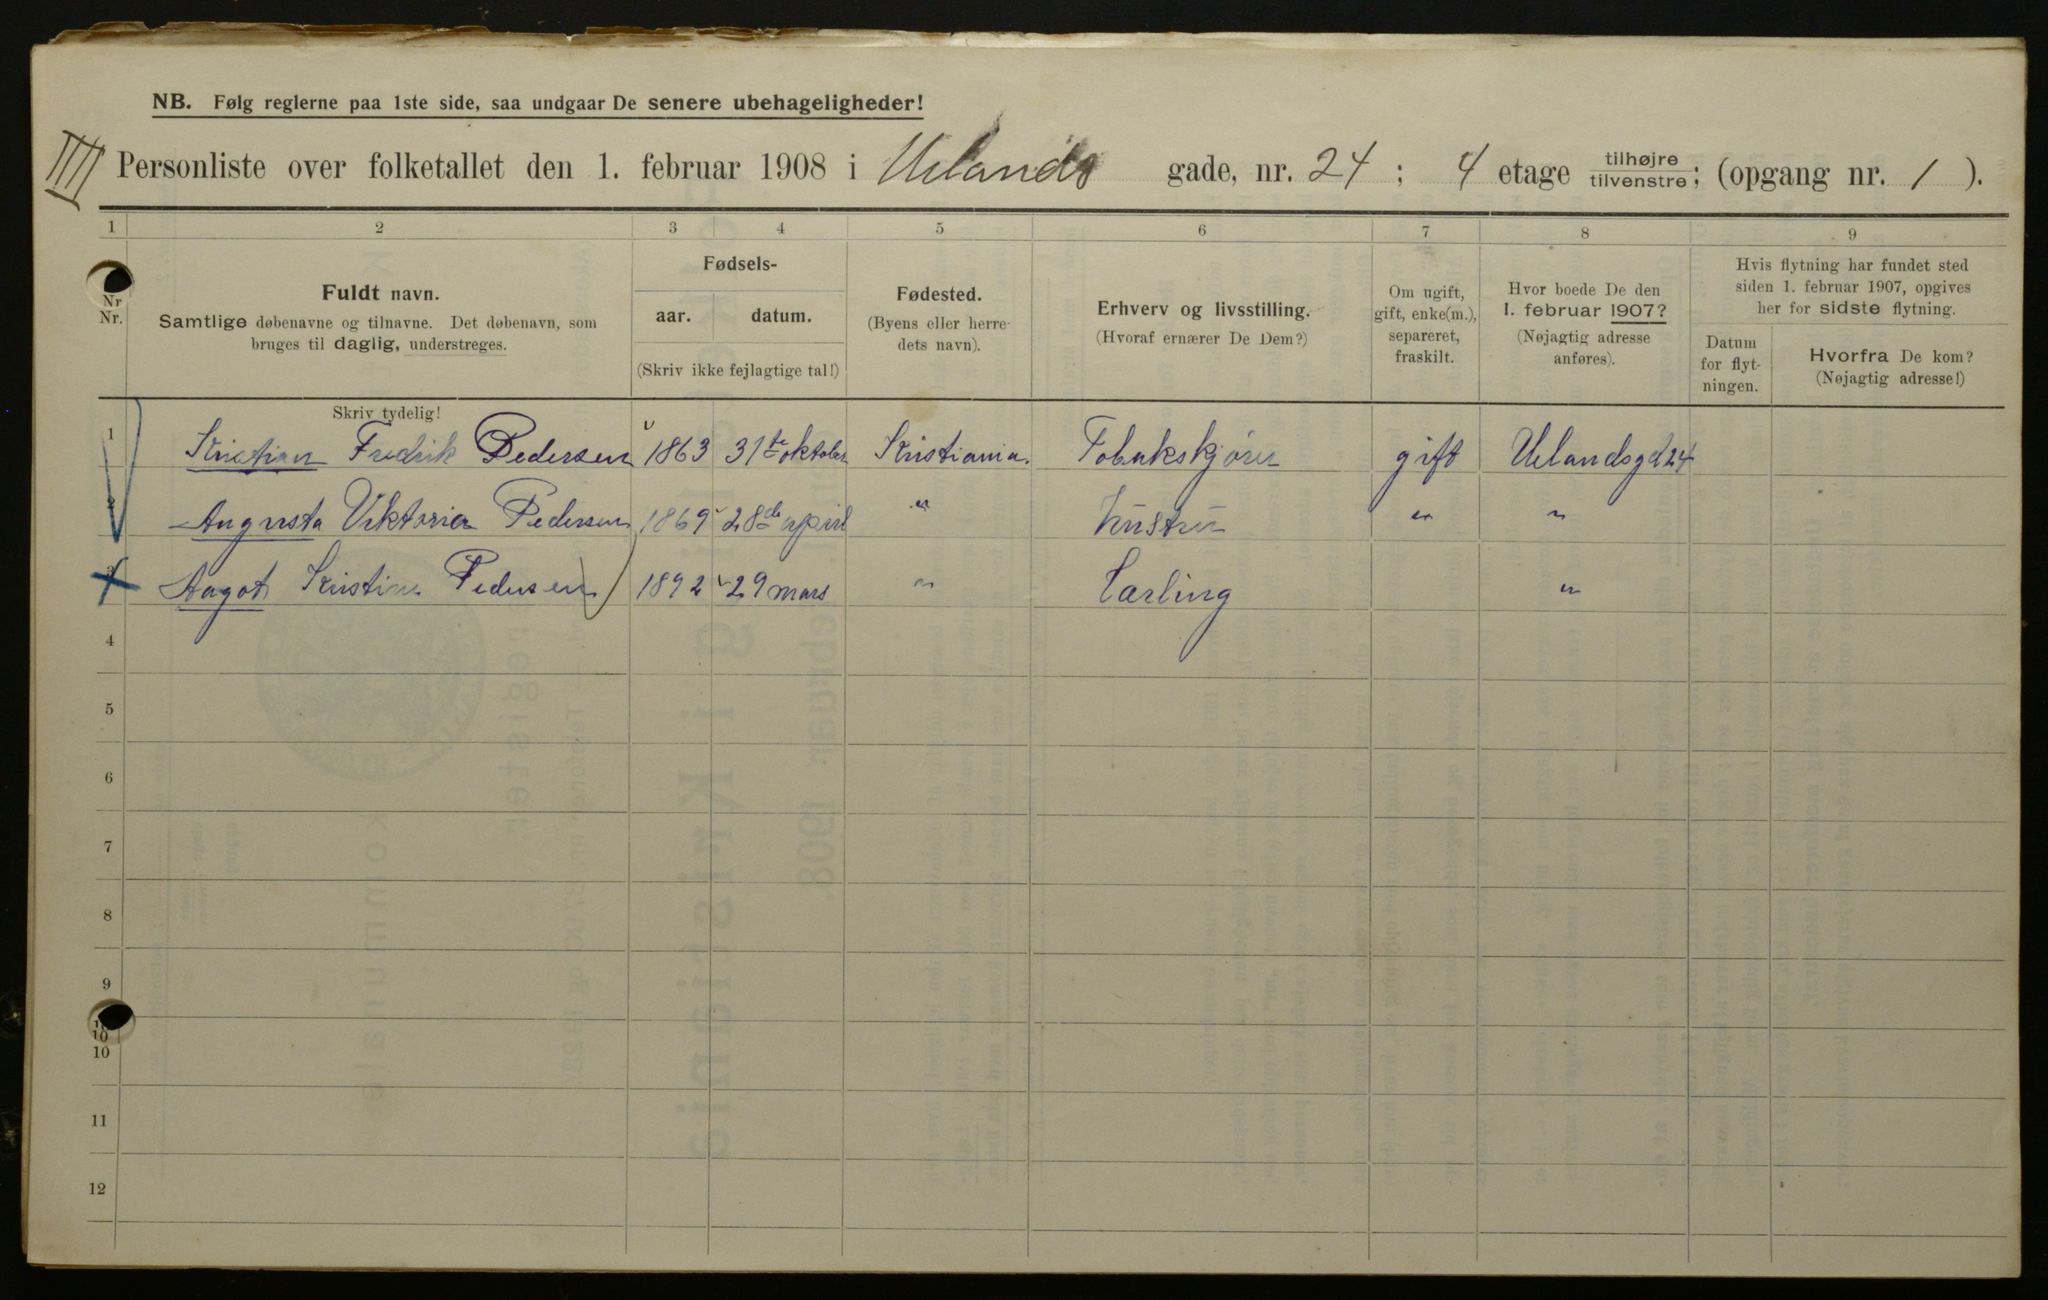 NB. Følg reglerne paa 1ste side, saa undgaar De senere ubehageligheder!
Personliste over folketallet den 1. februar 1908 i Uelands gade, nr. 24 ; 4 etage tilhøjre tilvenstre; (opgang nr. 1 ).
1 2 3 4 5 6 7 8 9
Nr Nr.
Fuldt navn.
Samtlige døbenavne og tilnavne. Det døbenavn, som
bruges til daglig, understreges.
Fødsels-
aar. datum.
(Skriv ikke fejlagtige tal!)
Fødested.
(Byens eller herre-
dets navn).
Erhverv og livsstilling.
(Hvoraf ernærer De Dem?)
Om ugift,
gift, enke(m.),
separeret,
fraskilt.
Hvor boede De den
1. februar 1907?
(Nøjagtig adresse
anføres).
Hvis flytning har fundet sted
siden 1. februar 1907, opgives
her for sidste flytning.
Datum
for flyt-
ningen.
Hvorfra De kom?
(Nøjagtig adresse!)
Skriv tydelig!
1 Kristian Fredrik Pedersen 1863 31te oktober Kristiania. Tobakskjører gift Uelandsgd 24
2 Augusta Viktoria Pedersen 1869 28de april " Hustru " "
3 Aagot Kristine Pedersen 1892 29 mars " Lærling "
4
5
6
7
8
9
10
10
11
12